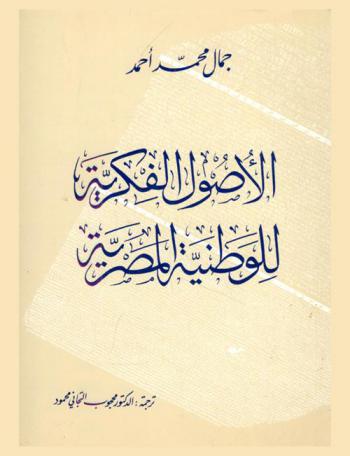 جمال محمّد أحمد
الأصول الفكريّة
للوطنيّة المصريّة
ترجمة : الدكتور محجوب التجاني محمود